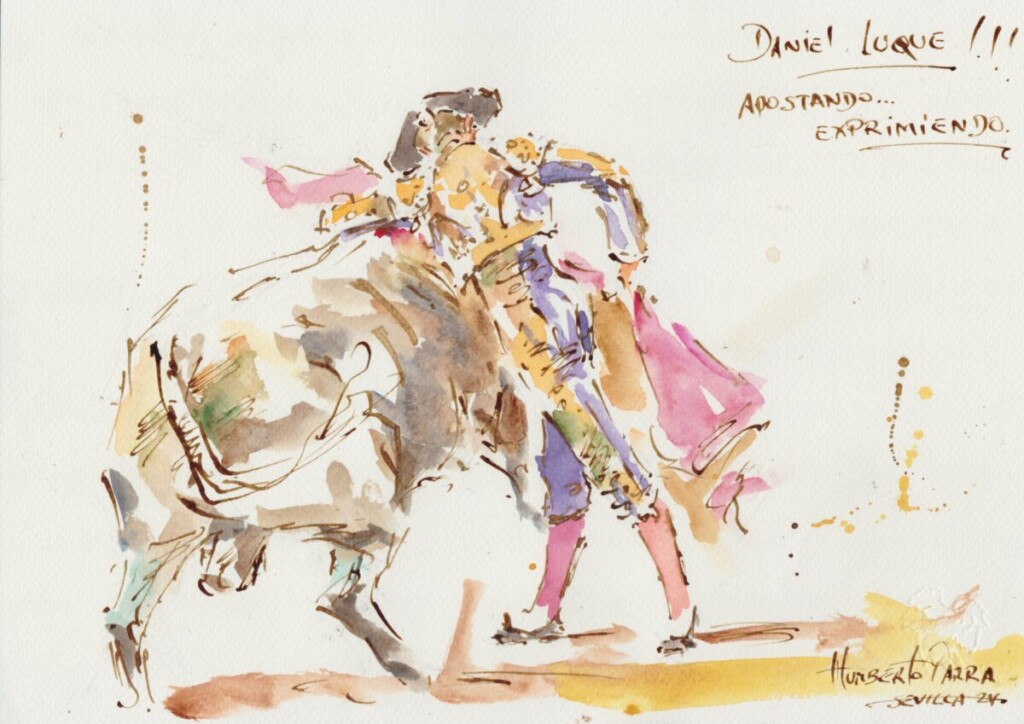 DANIEL LUQUE !!!
APOSTANDO...
EXPRIMIENDO.
HUMBERTO PARRA
SEVILLA 24